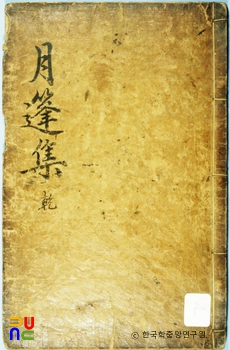 月篷集
乾
© 한국학중앙연구원